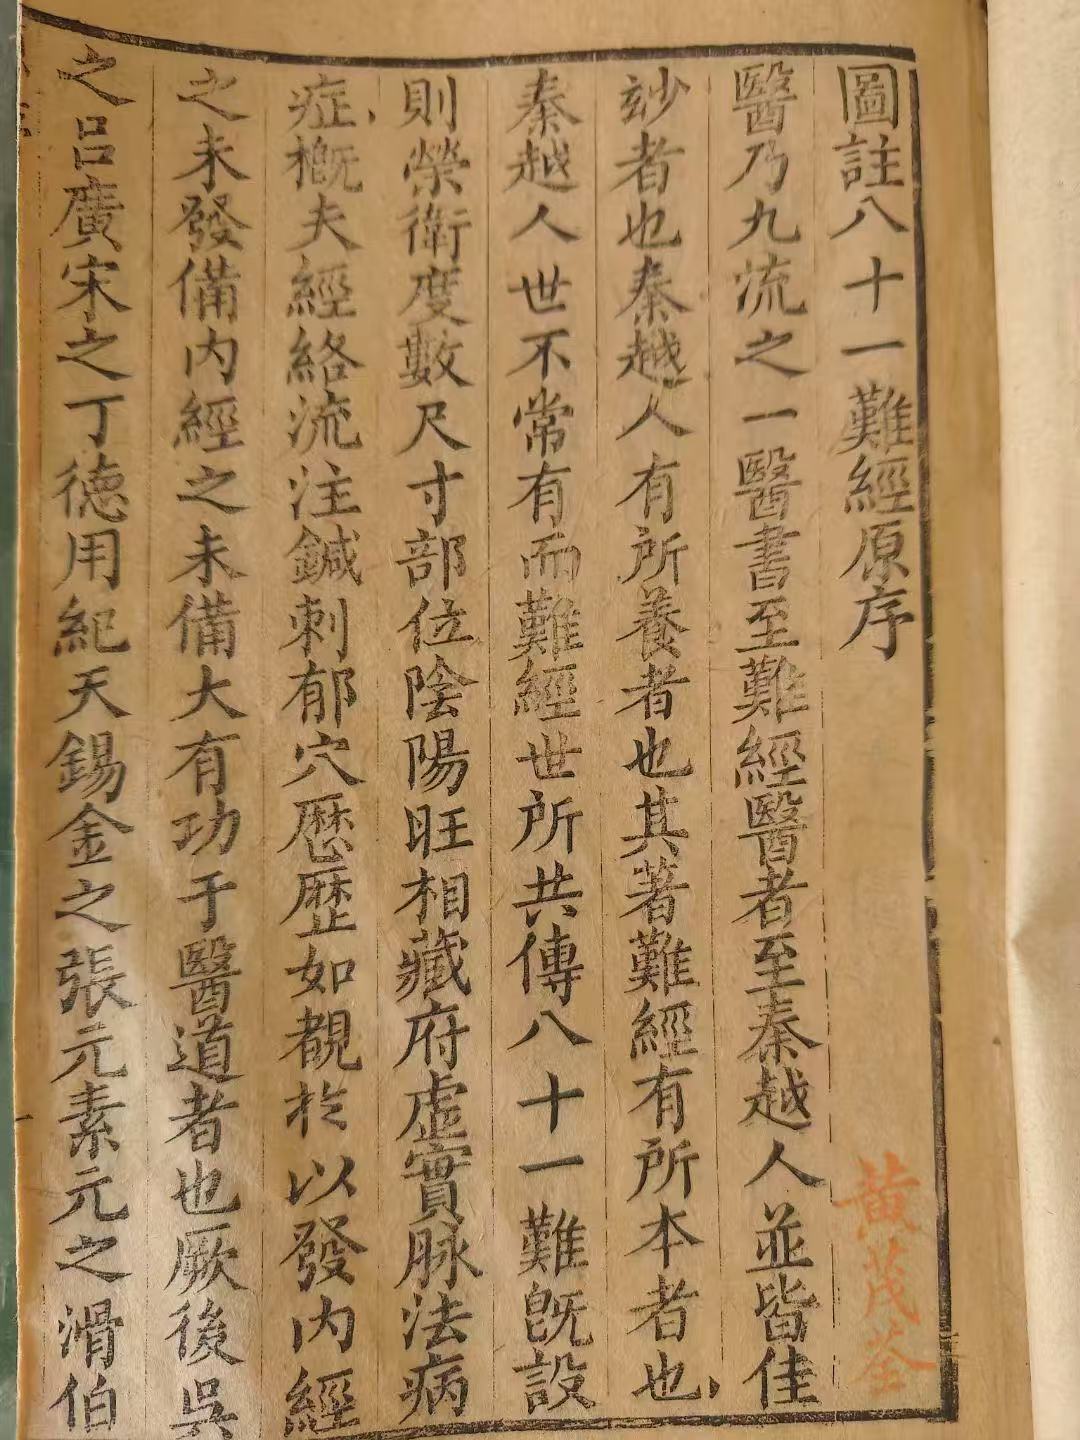 圖註八十一難經原序
黄茂荃
醫乃九流之一醫書至難經醫者至秦越人並皆佳
玅者也秦越人有所養者也其著難經有所本者也
秦越人世不常有而難經世所共傳八十一難旣設
則榮衛度數尺寸部位陰陽旺相藏府虛實脉法病
症槪夫經絡流注鍼刺郁穴歷歷如覩於以發內經
之未發備內經之未備大有功于醫道者也厥後吳
之呂廣宋之丁德用紀天錫金之張元素元之滑伯